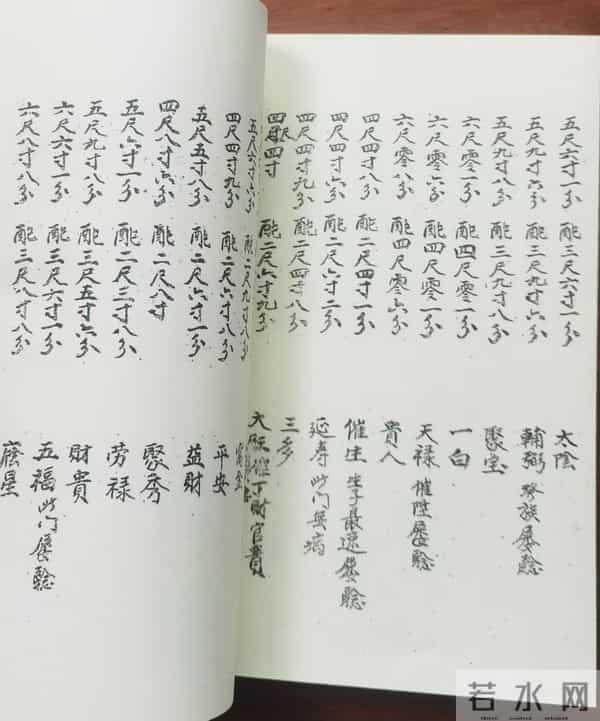 五尺六寸一分 配三尺六寸一分 太陰
五尺九寸六分 配三尺九寸六分 輔弼 發族屡驗
五尺九寸八分 配三尺九寸八分 聚宝
六尺零一分 配四尺零一分 一白
六尺零六分 配四尺零一分 天禄 催陞屡驗
六尺零八分 配四尺零六分 貴人
四尺八寸一分 配二尺四寸一分 催生 生子最速屡驗
四尺四寸六分 配二尺六寸二分 延寿 此门無病
四尺四寸九分 配二尺四寸八分 三多
四尺四寸 配二尺六寸九分 大旺催丁財官貴
五尺六寸六分 配二尺九寸八分
四尺四寸九分 配二尺六寸八分 平安
五尺五寸八分 配二尺六寸一分 益財
四尺八寸六分 配二尺八寸 聚秀
五尺六寸一分 配二尺三寸一分 劳禄
五尺九寸八分 配三尺五寸六分 財貴
六尺六寸一分 配三尺六寸一分 五福 此门屡驗
六尺八寸八分 配三尺八寸八分 星
若水网